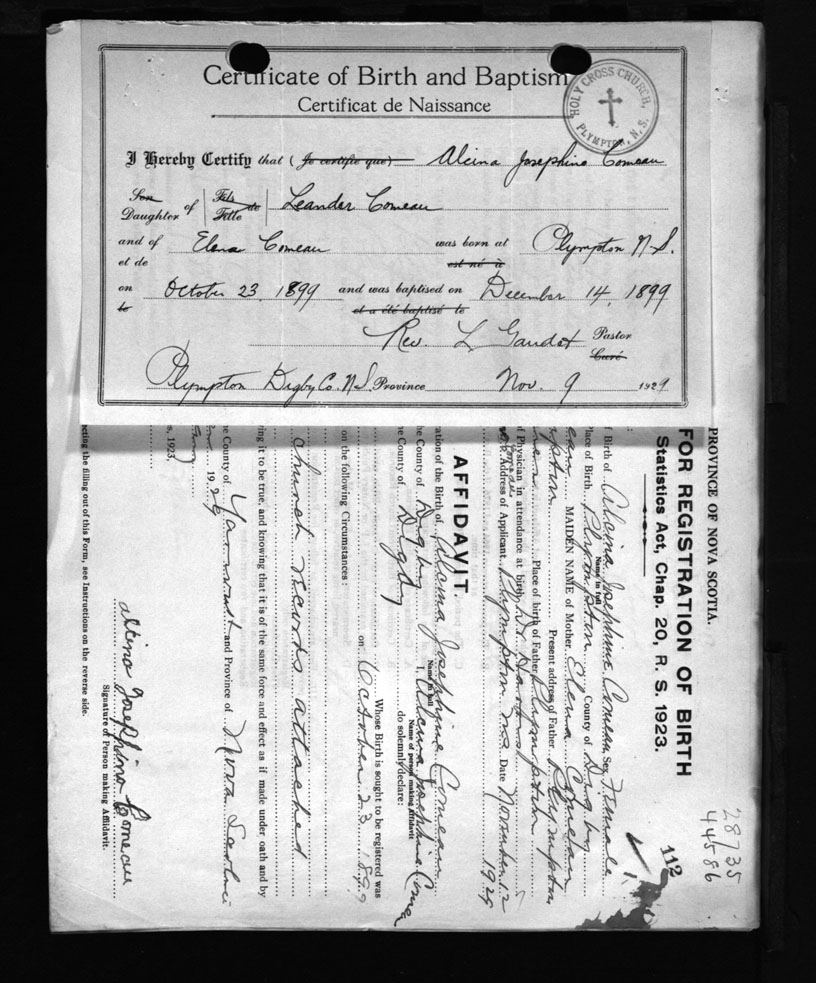 Certificate of Birth and Baptism
Certificat de Naissance
HOLY CROSS CHURCH, PLYMPTON, N.S.
I Hereby Certify that (Je certifie que) Alcina Josephine Comeau
Son Daughter of Fils Fille de Leander Comeau
and of Elena Comeau was born at Plympton N.S.
et de est né à
on October 23, 1899 and was baptised on December 14, 1899
le et a été baptisé le
Rev. L Gaudet Pastor
Curé
Plympton Digby Co. N.S. Province Nov. 9 1929
28735
44586
112
PROVINCE OF NOVA SCOTIA.
FOR REGISTRATION OF BIRTH
Statistics Act, Chap. 20, R. S. 1923.
f Birth of Alcina Josephine Comeau Sex Female
Name in full
lace of Birth Plympton County of Digby
eau MAIDEN NAME of Mother Elena Comeau
pton Present address of Father Plympton
Place of birth of Father Plympton
f Physician in attendance at birth Dr
P. Address of Applicant Plympton NS Date November 12 1929
AFFIDAVIT.
ation of the Birth of Alcina Josephine Comeau
Name in full
he County of Digby I, Alcina Josephine Comeau
Name of person making Affidavit
he County of Digby do solemnly declare:
Whose Birth is sought to be registered was
on October 23 1899
on the following Circumstances:
church records attached
ing it to be true, and knowing that it is of the same force and effect as if made under oath and by
he County of Yarmouth and Province of Nova Scotia
1929
s, 1923.
Alcina Josephine Comeau
Signature of Person making Affidavit.
ecting the filling out of this Form, see Instructions on the reverse side.